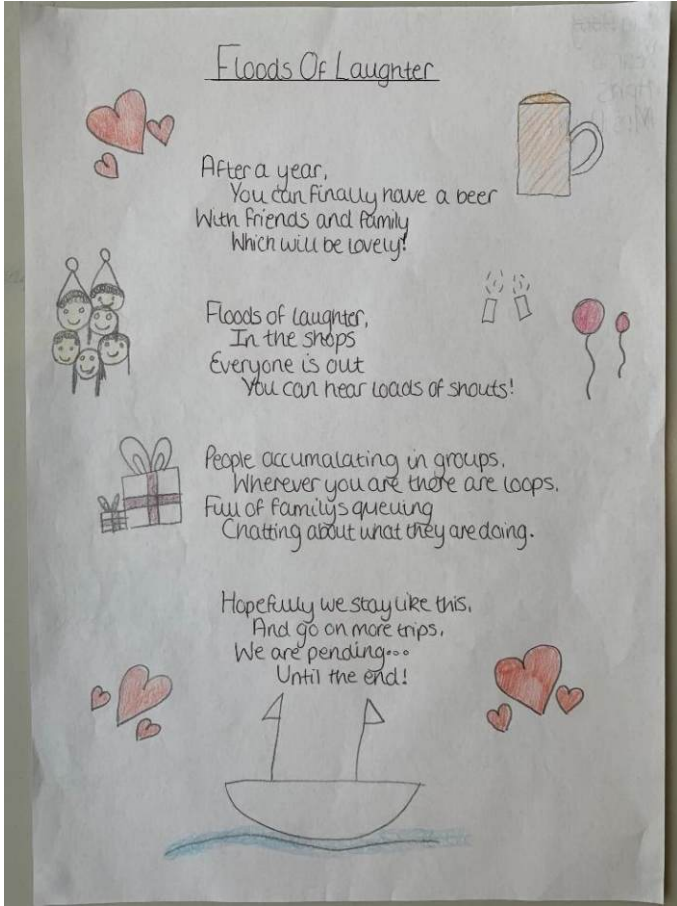 Floods Of Laughter
After a year,
You can finally have a beer
With friends and family
Which will be lovely!
Floods of laughter,
In the shops
Everyone is out
You can hear loads of shouts!
People accumalating in groups.
Wherever you are there are loops.
Full of familys queuing
Chatting about what they are doing.
Hopefully we stay like this,
And go on more trips,
We are pending...
Until the end!